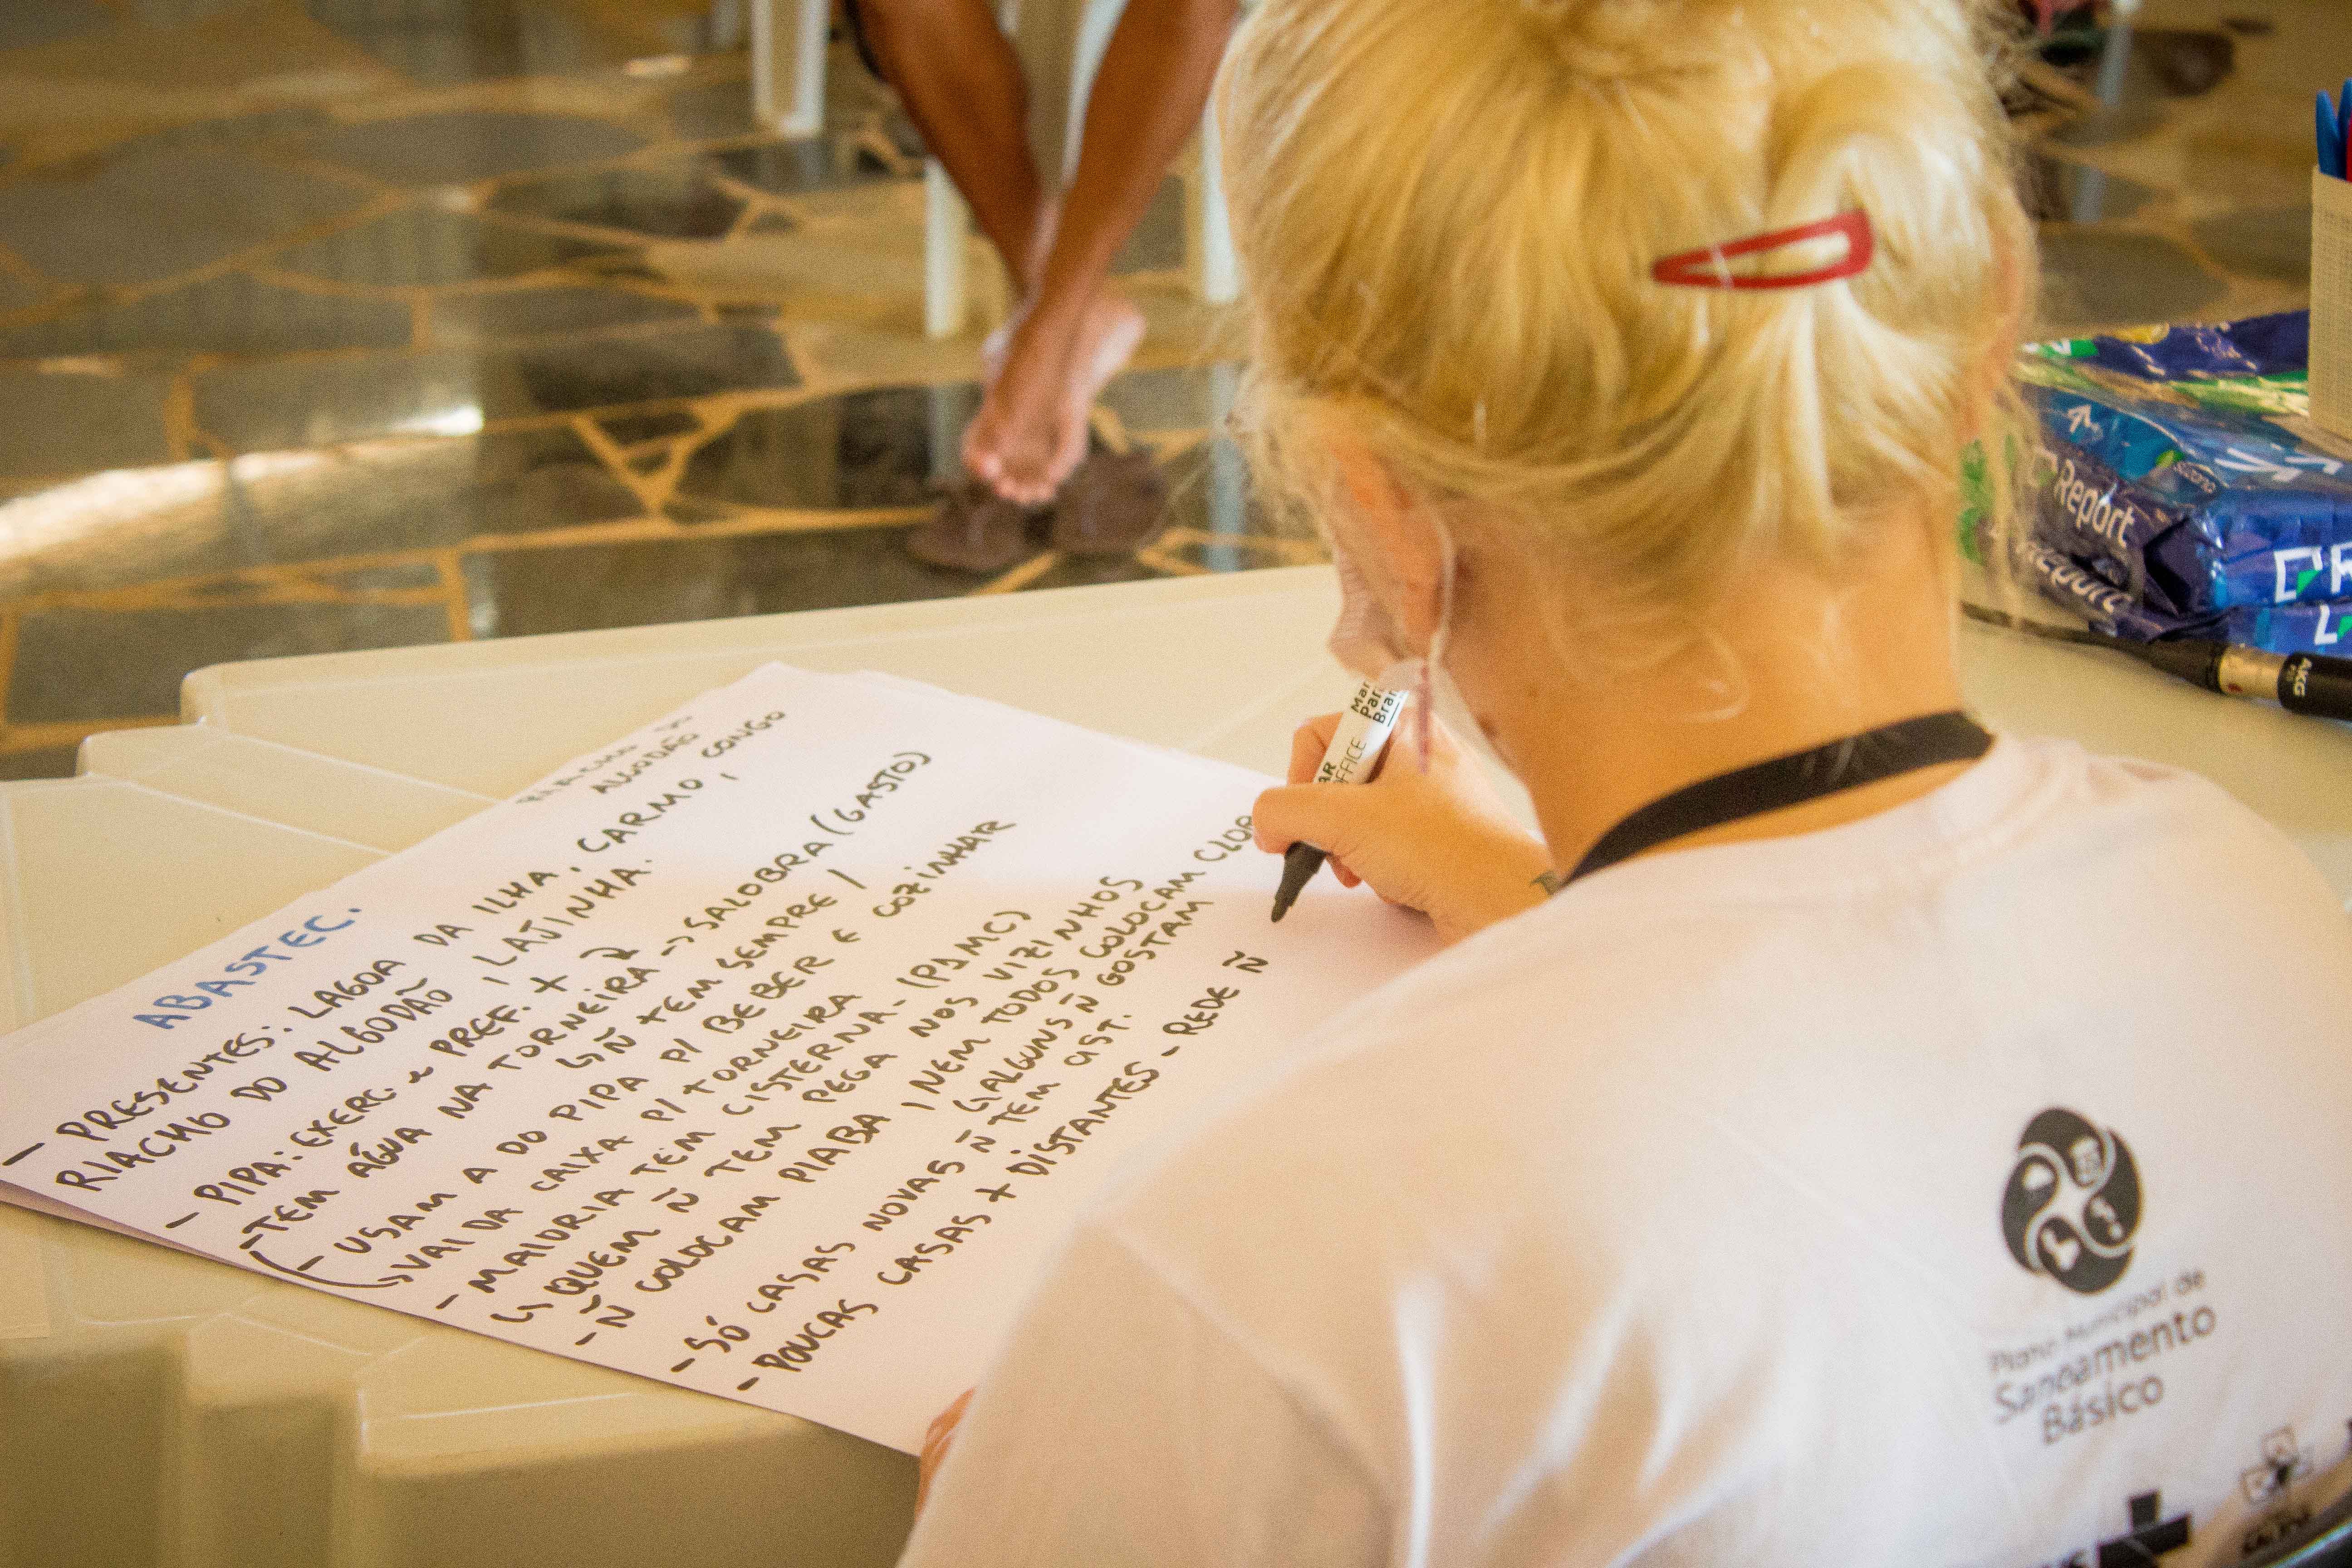 RIACHO DO
ALGODÃO
ABASTEC.
- PRESENTES: LAGOA DA ILHA, CARMO, CONGO,
RIACHO DO ALGODÃO, LAJINHA.
- PIPA: EXERC. e PREF. +
- TEM ÁGUA NA TORNEIRA -> SALOBRA (GASTO)
↳ Ñ TEM SEMPRE
- USAM A DO PIPA P/ BEBER E COZINHAR
↳ VAI DA CAIXA P/ TORNEIRA
- MAIORIA TEM CISTERNA - (P1MC)
↳ QUEM Ñ TEM PEGA NOS VIZINHOS
- Ñ COLOCAM PIABA, NEM TODOS COLOCAM CLOR
↳ ALGUNS Ñ GOSTAM
- SÓ CASAS NOVAS Ñ TEM CIST.
- POUCAS CASAS + DISTANTES - REDE Ñ
OFFICE
Report
Report
AKG
Plano Municipal de
Saneamento
Básico